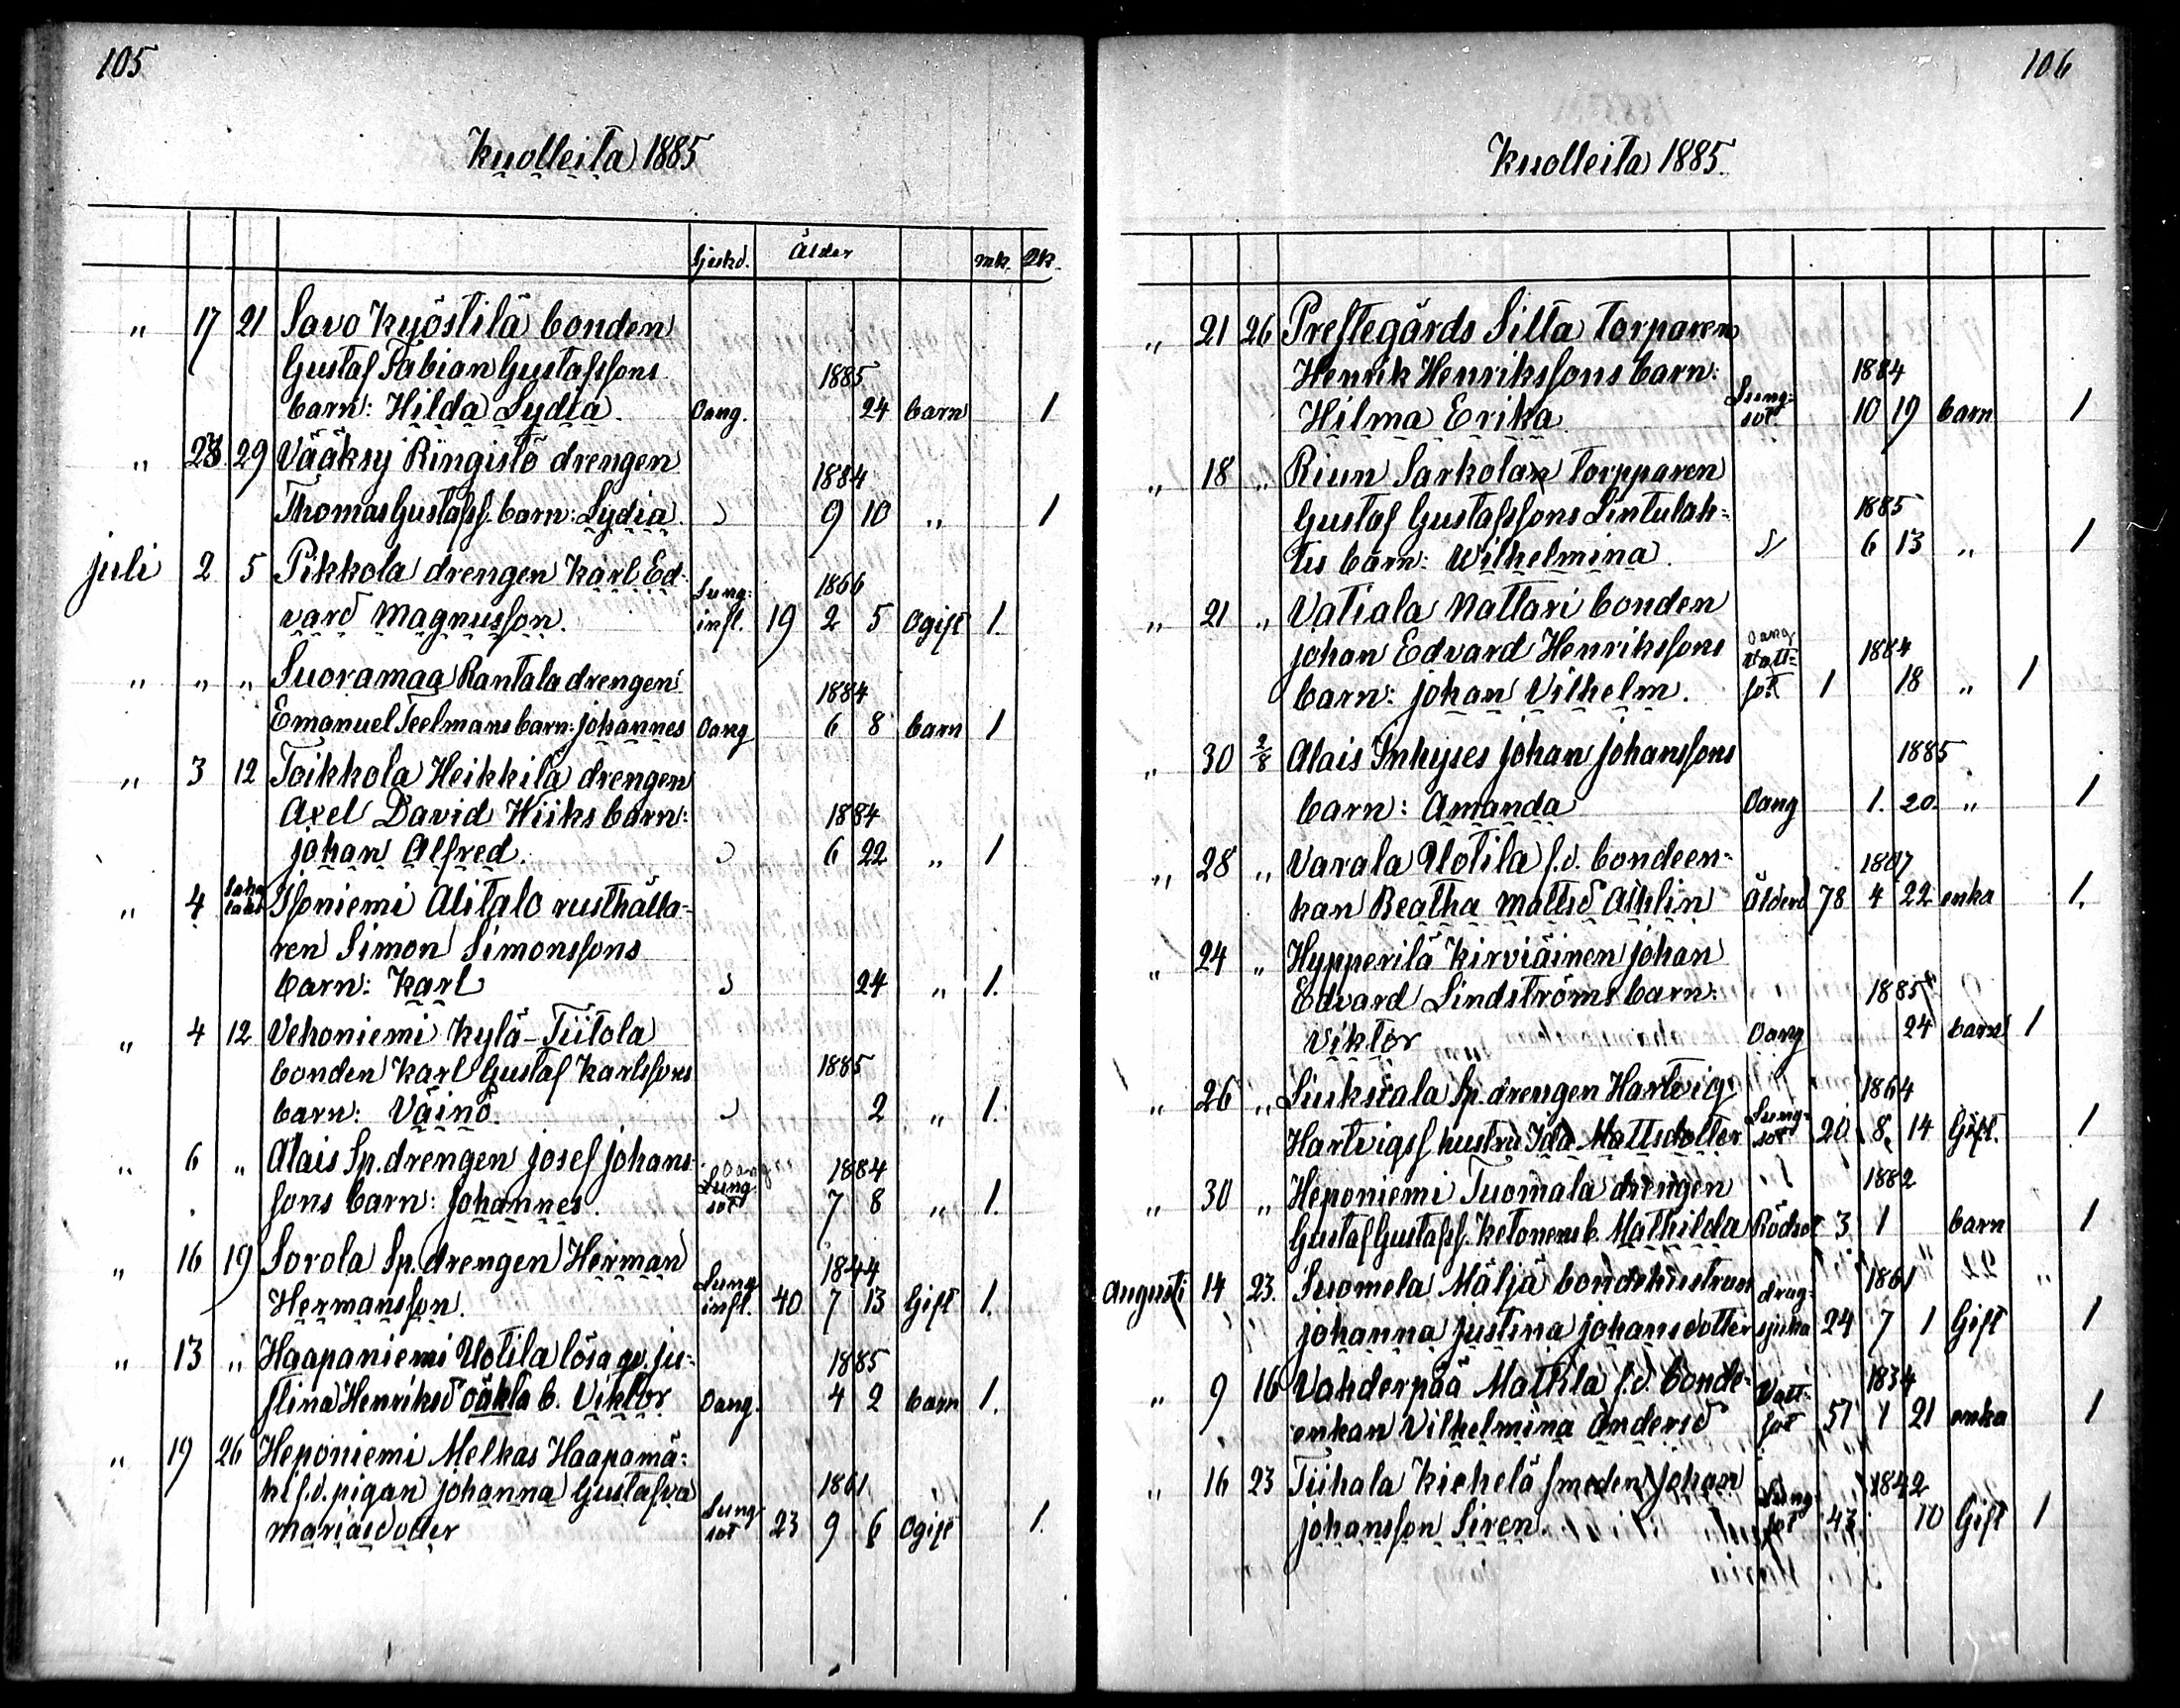 105
Kuolleita 1885
Sjukd. Ålder mk. Qk.
" 17 21 Savo Kyöstilä bonden
Gustaf Fabian Gustafssons 1885
barn: Hilda Lydia. Oang. 24 barn 1
" 23 29 Vääksy Ringistö drengen 1884
Thomas Gustafss. barn: Lydia. " 9 10 " 1
juli 2 5 Pikkola drengen Karl Ed- 1866
vard Magnusson. Lung: infl. 19 2 5 Ogift 1.
" " " Suoramaa Rantala drengen 1884
Emanuel Teelmans barn: Johannes Oang 6 8 barn 1
" 3 12 Toikkola Heikkilä drengen
Axel David Hiiks barn: 1884
Johan Alfred. " 6 22 " 1
" 4 Saha lahti Isoniemi Alitalo rusthålla-
ren Simon Simonssons
barn: Karl " 24 " 1.
" 4 12 Vehoniemi Kylä-Tiitola
bonden Karl Gustaf Karlssons 1885
barn: Väinö. " 2 " 1.
" 6 " Alais Sp. drengen Josef Johans- Oang 1884
sons barn: Johannes. Lung sot 7 8 " 1.
" 16 19 Sorola Sp. drengen Herman 1844
Hermansson. Lung infl. 40 7 13 Gift 1.
" 13 " Haapaniemi Uotila lösa qv. Ju- 1885
stina Henriksd oäkta b. Viktor Oang. 4 2 barn 1.
" 19 26 Heponiemi Melkas Haapamä-
ki f.d. pigan Johanna Gustafva 1861
Mariasdotter Lung sot 23 9 6 Ogift 1.
106
Kuolleita 1885.
" 21 26 Prestegårds Silta torparen
Henrik Henrikssons barn: 1884
Hilma Erika Lung: sot. 10 19 barn 1
" 18 " Riun Sarkolan torpparen
Gustaf Gustafssons Lintulah- 1885
tis barn: Wilhelmina. " 6 13 " 1
" 21 " Vatiala Nattari bonden
Johan Edvard Henrikssons Oang 1884
barn: Johan Vilhelm. Vatt- sot 1 18 " 1
" 30 2/8 Alais Inhyses Johan Johanssons 1885
barn: Amanda Oang 1. 20. " 1
" 28 " Varala Uotila f.d. bondeen- 1807
kan Beatha Mattsd Asklin Ålderd 78 4 22 enka 1.
" 24 " Hypperilä Kirviäinen Johan
Edvard Lindströms barn: 1885
Viktor Oang 24 barn 1
" 26 " Liuksiala Sp. drengen Hartvig 1864
Hartvigss hustru Ida Mattsdotter Lung- sot 20 8 14 Gift. 1
" 30 " Heponiemi Tuomala drengen 1882
Gustaf Gustafss. Ketonens b. Mathilda Rödsot 3 1 barn 1
Augusti 14 23. Suomela Mäljä bondehustrun 1861
Johanna Justina Johansdotter drag- sjuka 24 7 1 Gift 1
" 9 16 Vahderpää Mattila f.d. bonde- 1834
enkan Vilhelmina Andersd Vatt- sot 51 1 21 enka 1
" 16 23 Tiihala Kiehelä smeden Johan 1842
Johansson Siren. Lung- sot 43 10 Gift 1